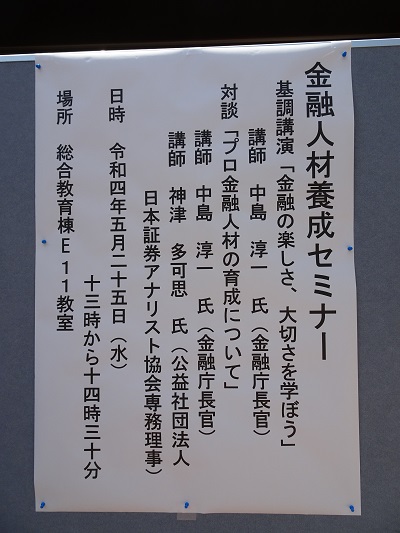 金融人材養成セミナー
基調講演「金融の楽しさ、大切さを学ぼう」
講師 中島 淳一 氏（金融庁長官）
対談「プロ金融人材の育成について」
講師 中島 淳一 氏（金融庁長官）
講師 神津 多可思 氏（公益社団法人
日本証券アナリスト協会専務理事）
日時 令和四年五月二十五日（水）
十三時から十四時三十分
場所 総合教育棟Ｅ１１教室